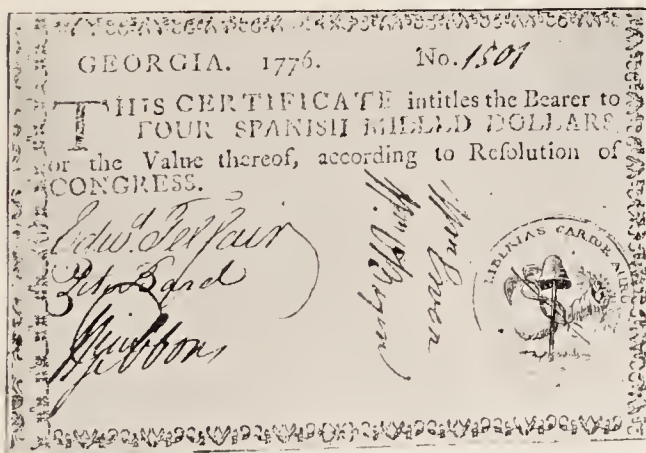 GEORGIA. 1776. No. 1501
THIS CERTIFICATE intitles the Bearer to
FOUR SPANISH MILLED DOLLARS,
or the Value thereof, according to Reſolution of
CONGRESS.
Edwd. Telfair
Wm
Wm
LIBERTAS CARIOR AURO